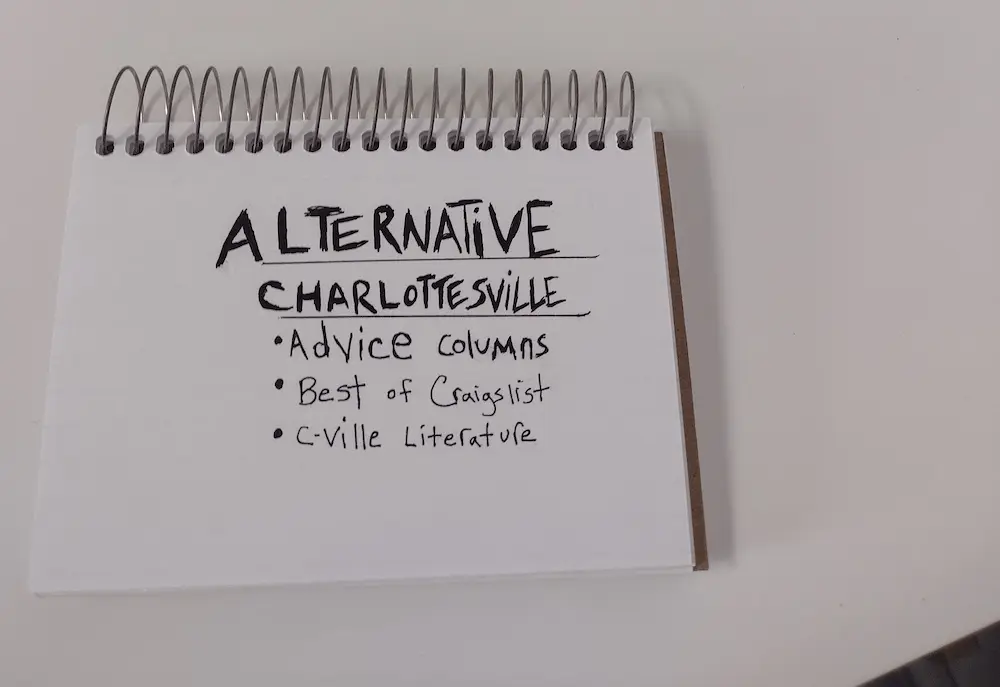 ALTERNATiVE
CHARLOTTESViLLE
• Advice columns
• Best of Craigslist
• C-ville Literature